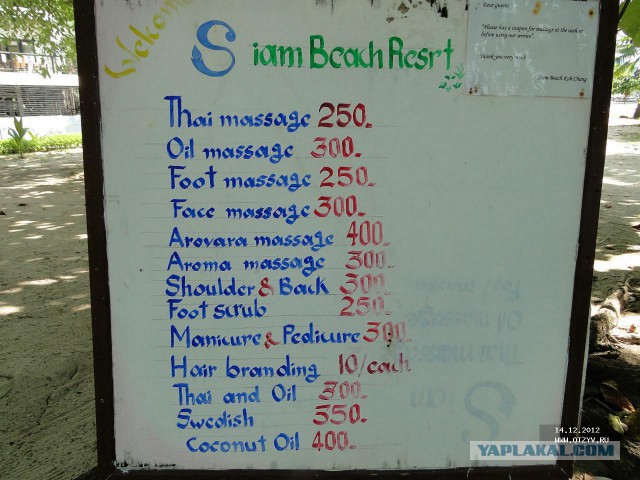 Welcome
Siam Beach Resrt
Dear guests
"Please buy a coupon for massage at the cashier
before using our service".
Thank you very much
Siam Beach Koh Chang
Thai massage 250.-
Oil massage 300.-
Foot massage 250.-
Face massage 300.-
Arovara massage 400.-
Aroma massage 300.-
Shoulder & Back 300.-
Foot scrub 250.-
Manicure & Pedicure 300.-
Hair branding 10/each
Thai and Oil 300.-
Swedish 350.-
Coconut Oil 400.-
14.12.2012
WWW.OTZYV.RU
YAPLAKAL.COM